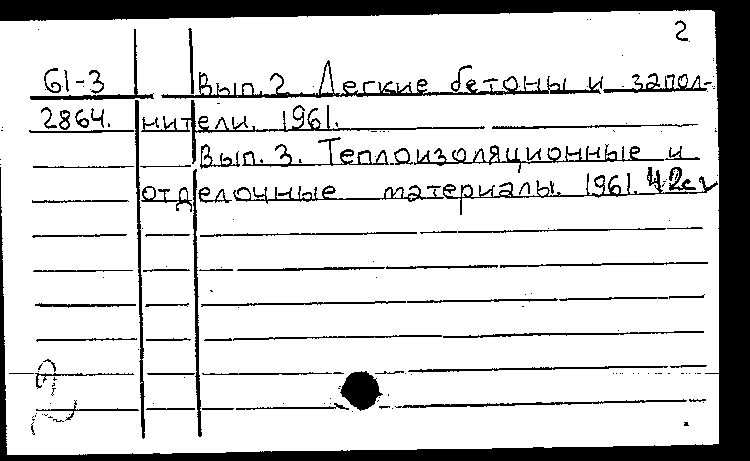 2
61-3 Вып. 2. Легкие бетоны и запол-
2864. нители. 1961.
Вып. 3. Теплоизоляционные и
отделочные материалы. 1961. 42с